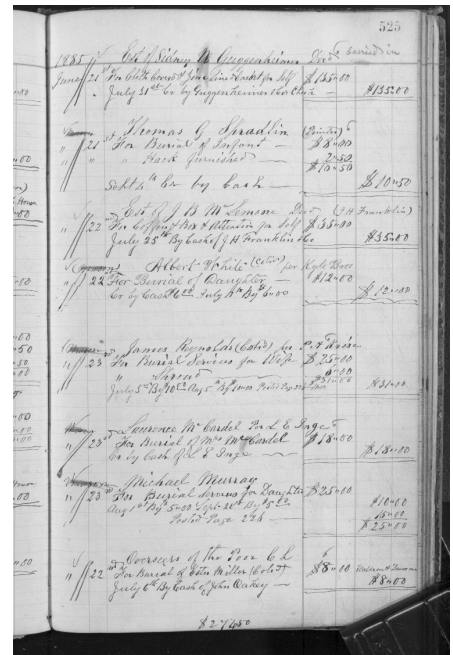 525
1885 Est of Sidney W Guggenheimer Decd
June 21st For Cloth Covered & Casket for Self $135.00
July 31st Cr by Guggenheimer & Co Check $135.00
Thomas G Spradlin
" 21st For Burial of Infant $8.00
" " Hack furnished 2.50
$10.50
Sept 4th Cr by Cash $10.50
Est of J B McLemore Decd (J H Franklin)
" 22nd For Coffin & Box & Attention for Self $35.00
July 25th By Cash of J H Franklin & Co $35.00
Albert White (Cold) per Kyle Bros
" 22 For Burial of Daughter $12.00
Cr by Cash July By $6.00 $12.00
James Reynolds (Cold) per
" 23rd For Burial Services for Wife $25.00
" Shroud 6.00
$31.00
July 5th By Aug 5th By Posted Page $31.00
Laurence McCardel Per L E Inge
" 23rd For Burial of Mrs McCardel $18.00
Cr by Cash of L E Inge $18.00
Michael Murray
" 23rd For Burial Services for Daughter $25.00
Aug 1st By 5.00 Sept By $5.00 $10.00
Posted Page 224 15.00
$25.00
Overseers of the Poor C L
" 22nd For Burial of Miller (Cold) $8.00
July 6th By Cash of John Oakey $8.00
$274.50